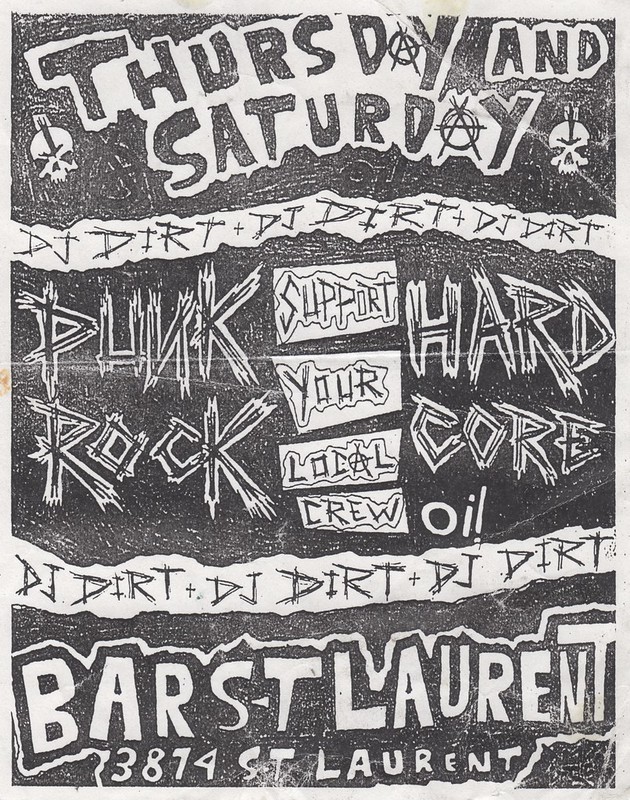 THURSDAY AND
SATURDAY
DJ DIRT + DJ DIRT + DJ DIRT
PUNK
ROCK
SUPPORT
YOUR
LOCAL
CREW
HARD
CORE
oi!
DJ DIRT + DJ DIRT + DJ DIRT
BAR S-T LAURENT
3874 ST LAURENT